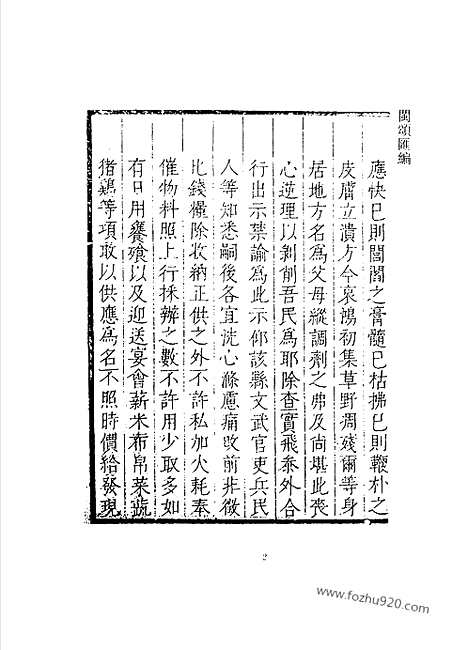 閩頌匯編
應快巳則閭閻之膏髓巳枯拂巳則鞭朴之
皮膚立潰方今哀鴻初集草野凋殘爾等身
居地方名為父母縱調劑之弗及尙堪此喪
心逆理以剥削吾民為耶除查實飛叅外合
行出示禁諭為此示仰該縣文武官吏兵民
人等知悉嗣後各宜洗心滌慮痛改前非徵
比錢糧除收納正供之外不許私加火耗奉
催物料照上行採辦之數不許用少取多如
有日用饔飱以及迎送宴會薪米布帛菜蔬
猪鷄等項敢以供應為名不照時價給發現
2
www.fozhu920.com